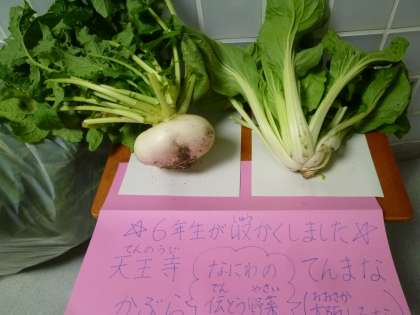 ☆6年生が収かくしました☆
てんのうじ
天王寺
かぶら
なにわの
でん やさい
伝とう野菜
てんまな
(おおさか